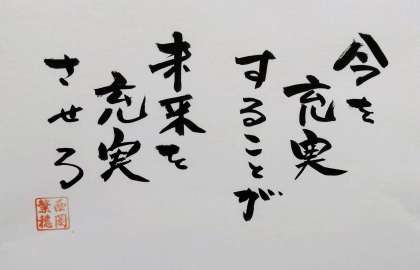 今を
充実
することが
未来を
充実
させる